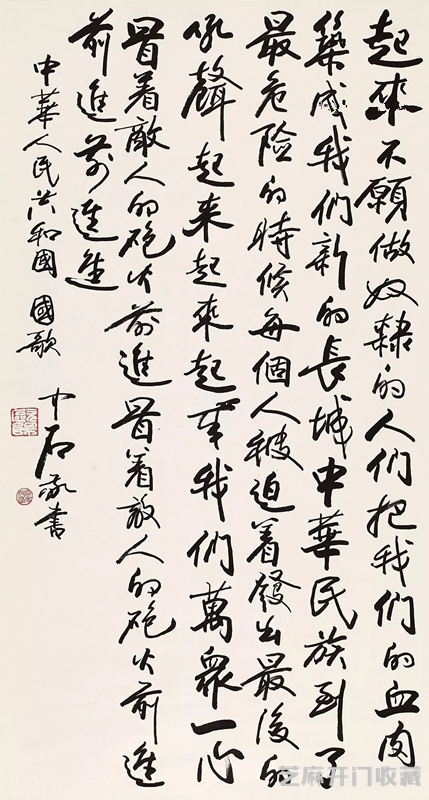 起來不願做奴隸的人们把我们的血肉
築成我们新的長城中華民族到了
最危险的時候每個人被迫着發出最後的
吼聲起来起来起来我们萬眾一心
冒着敵人的砲火前進冒着敵人的砲火前進
前進前進進
中華人民共和國 國歌 中石敬書
芝麻开门收藏